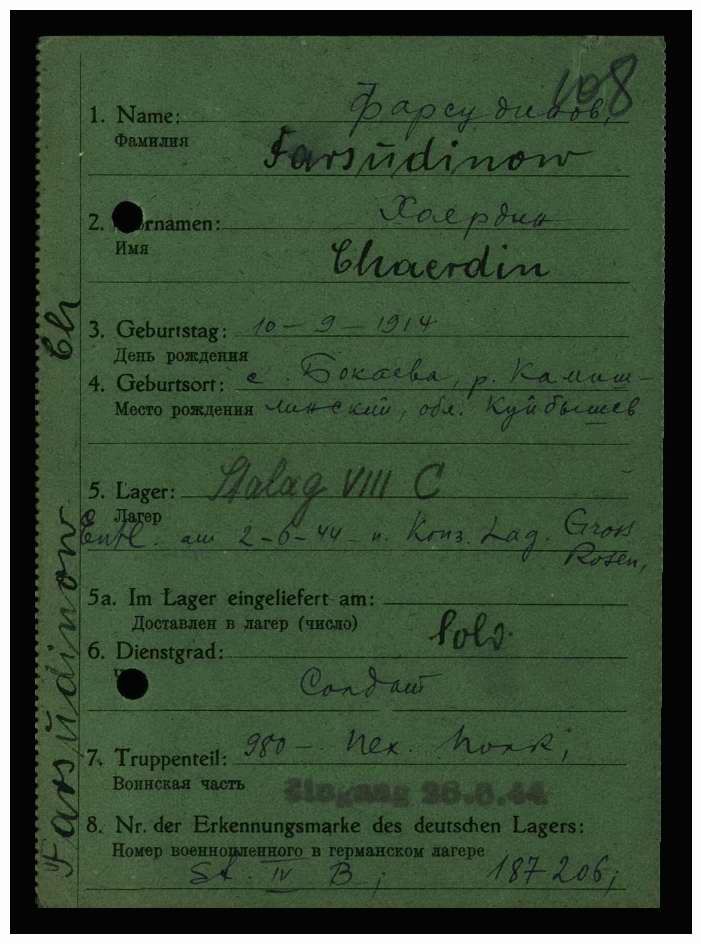 108
1. Name: Фарсудинов,
Фамилия
Farsudinow
2. Vornamen: Хаердин
Имя
Chaerdin
3. Geburtstag: 10 – 9 – 1914
День рождения
4. Geburtsort: с. Бокаева, р. Камиш-
Место рождения линский, обл. Куйбышев
5. Lager: Stalag VIII C
Лагер
Entl. am 2-6-44 n. Konz. Lag. Gross
Rosen,
5a. Im Lager eingeliefert am:
Доставлен в лагер (число)
6. Dienstgrad: Sold.
Солдат
7. Truppenteil: 980 – Пех. Полк;
Воинская часть
Eingang 26.6.44
8. Nr. der Erkennungsmarke des deutschen Lagers:
Номер военнопленного в германском лагере
St. IV B; 187206;
Farsudinow Ch